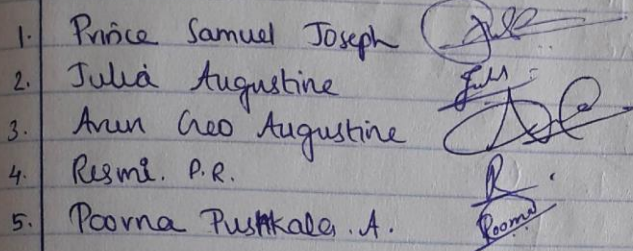 1. Prince Samuel Joseph
2. Julia Augustine Juls
3. Arun Geo Augustine
4. Resmi. P.R. R.
5. Poorna Pushkala. A. Poorna